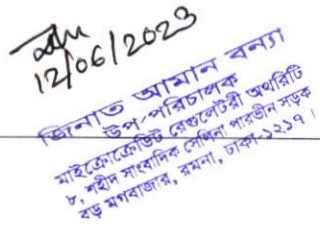 12/06/2023
জিনাত আমান বন্যা
উপ-পরিচালক
মাইক্রোক্রেডিট রেগুলেটরী অথরিটি
৮, শহীদ সাংবাদিক সেলিনা পারভীন সড়ক
বড় মগবাজার, রমনা, ঢাকা-১২১৭।